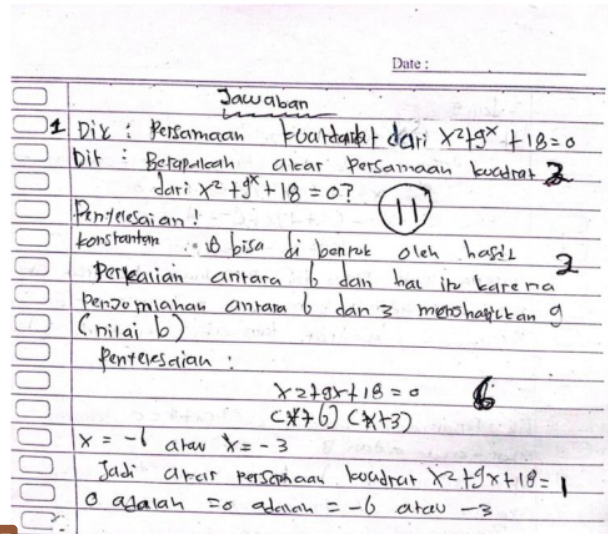 Date :
Jawaban
1 Dik : Persamaan kuardarat dari x²+9x +18=0
Dit : Berapakah akar persamaan kuadrat 2
dari x² +9x +18 = 0?
11
Penyelesaian :
konstantan 18 bisa di bentuk oleh hasil 2
Perkalian antara 6 dan hal itu karena
Penjumlahan antara 6 dan 3 menghasilkan 9
(nilai b)
Penyelesaian :
x2+9x+18=0 6
(x+6) (x+3)
x = -6 atau x= -3
Jadi akar persamaan kuadrat x²+9x+18= 1
0 adalah =0 adalah = -6 atau -3
2.